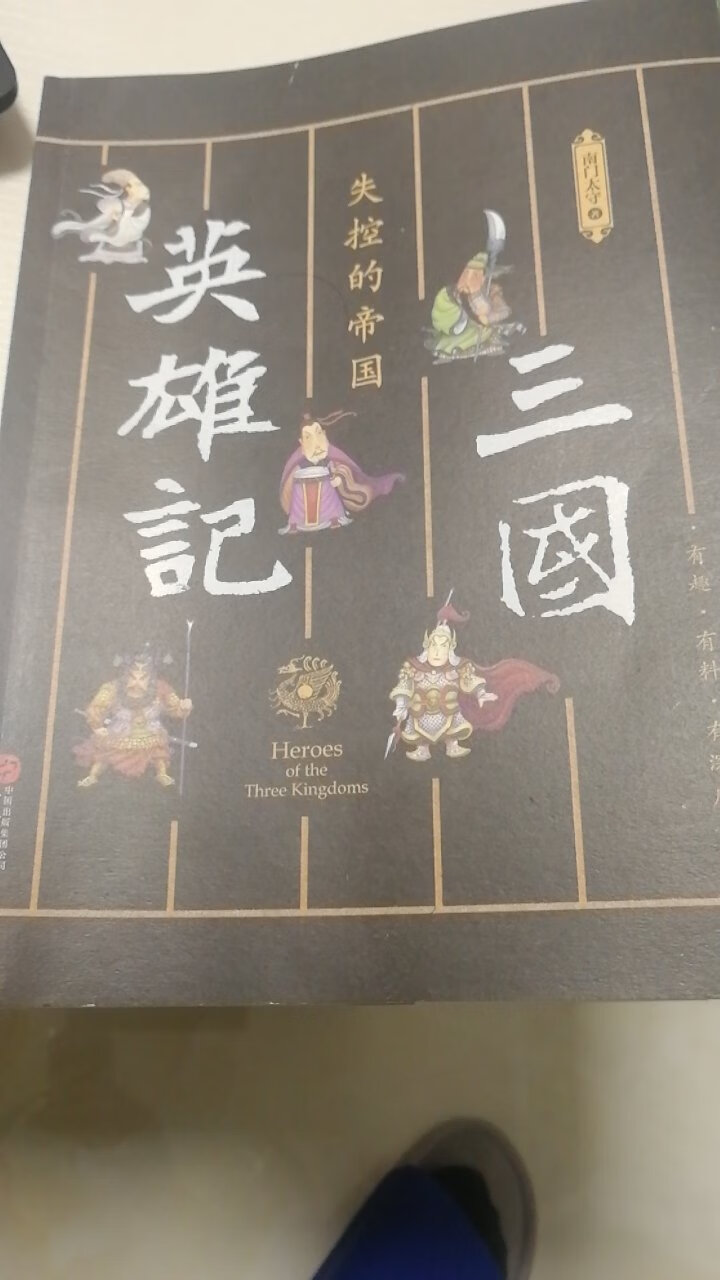 南门太守 著
三國
失控的帝国
英雄記
Heroes
of the
Three Kingdoms
有趣·有料·有深度
中国出版集团公司